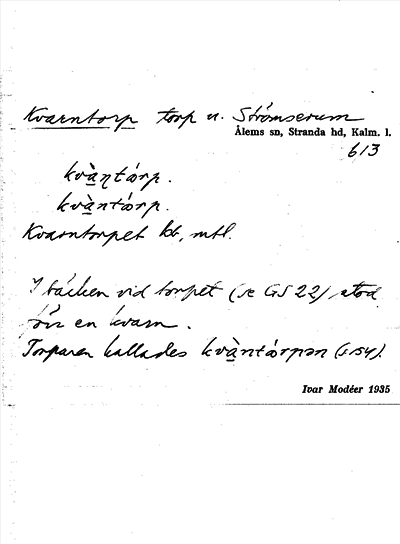 Kvarntorp torp u. Strömserum
Ålems sn, Stranda hd, Kalm. l.
613
kvàṇtårp.
kvàntårp.
Kvarntorpet kb, mtl.
I bäcken vid torpet (se GS 22) stod
förr en kvarn.
Torparen kallades kvàntårpən (s. 154).
Ivar Modéer 1935